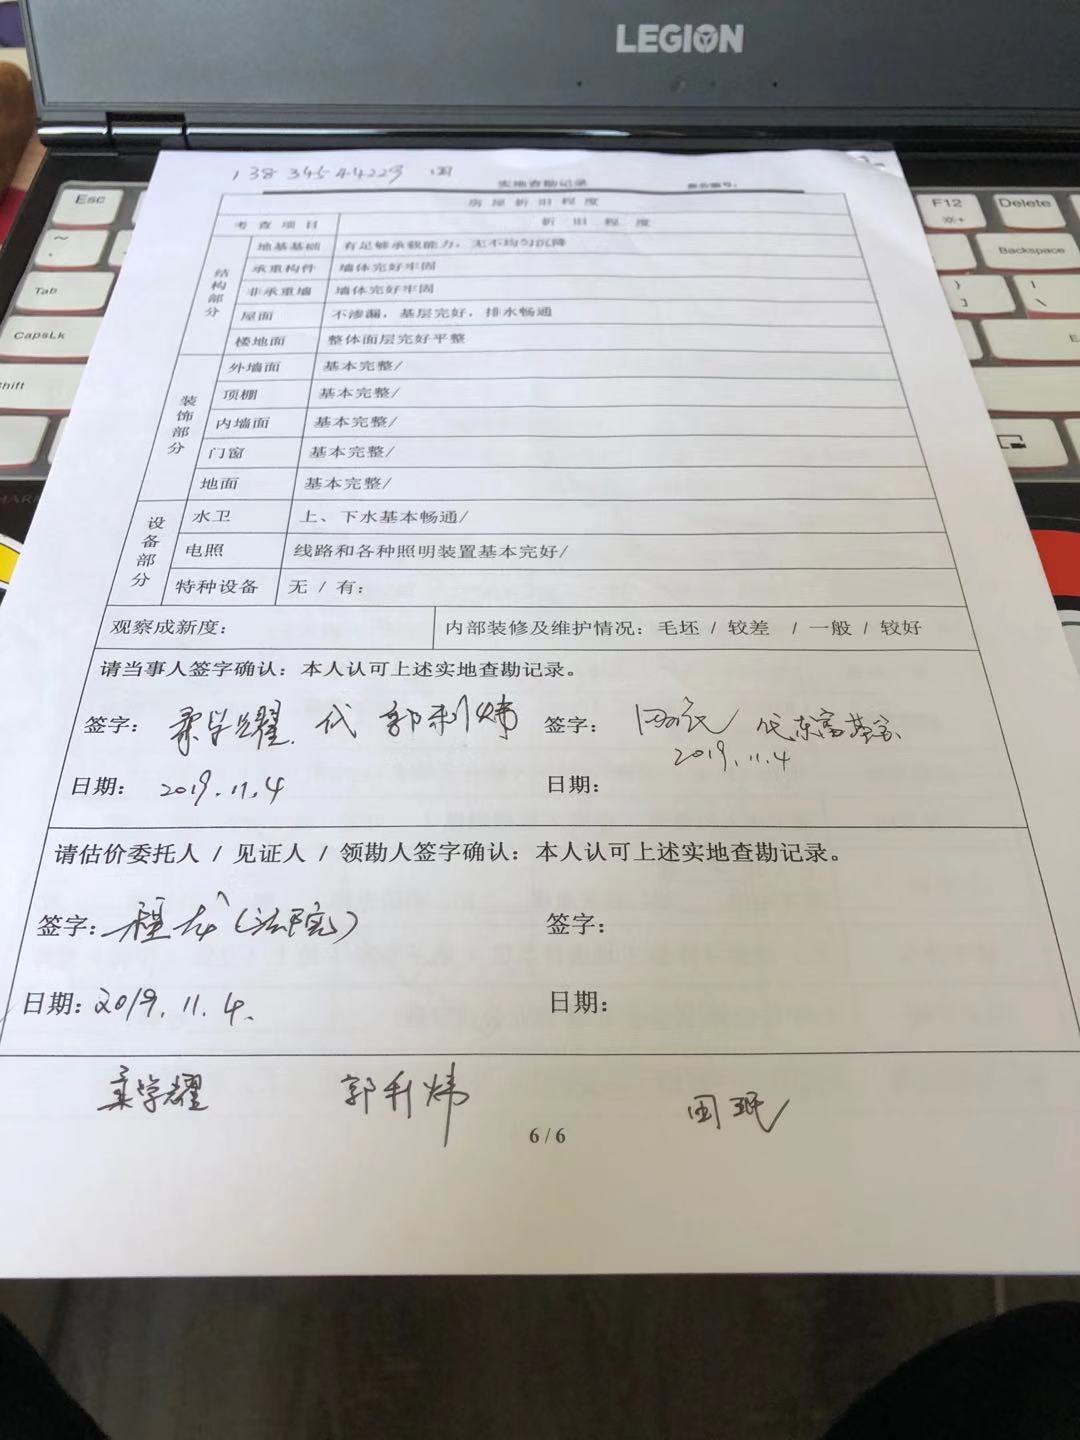 LEGION
Esc
F12
Delete
Backspace
Tab
CapsLk
13834544229 田
实地查勘记录
房屋折旧程度
考查项目 折旧程度
结构部分
地基基础 有足够承载能力，无不均匀沉降
承重构件 墙体完好牢固
非承重墙 墙体完好牢固
屋面 不渗漏，基层完好，排水畅通
楼地面 整体面层完好平整
装饰部分
外墙面 基本完整/
顶棚 基本完整/
内墙面 基本完整/
门窗 基本完整/
地面 基本完整/
设备部分
水卫 上、下水基本畅通/
电照 线路和各种照明装置基本完好/
特种设备 无 / 有：
观察成新度： 内部装修及维护情况：毛坯 / 较差 / 一般 / 较好
请当事人签字确认：本人认可上述实地查勘记录。
签字： 学耀 代 郭利炜 签字： 代东富基金
2019.11.4
日期： 2019.11.4 日期：
请估价委托人 / 见证人 / 领勘人签字确认：本人认可上述实地查勘记录。
签字： (法院) 签字：
日期：2019.11.4. 日期：
学耀 郭利炜 田珉
6 / 6